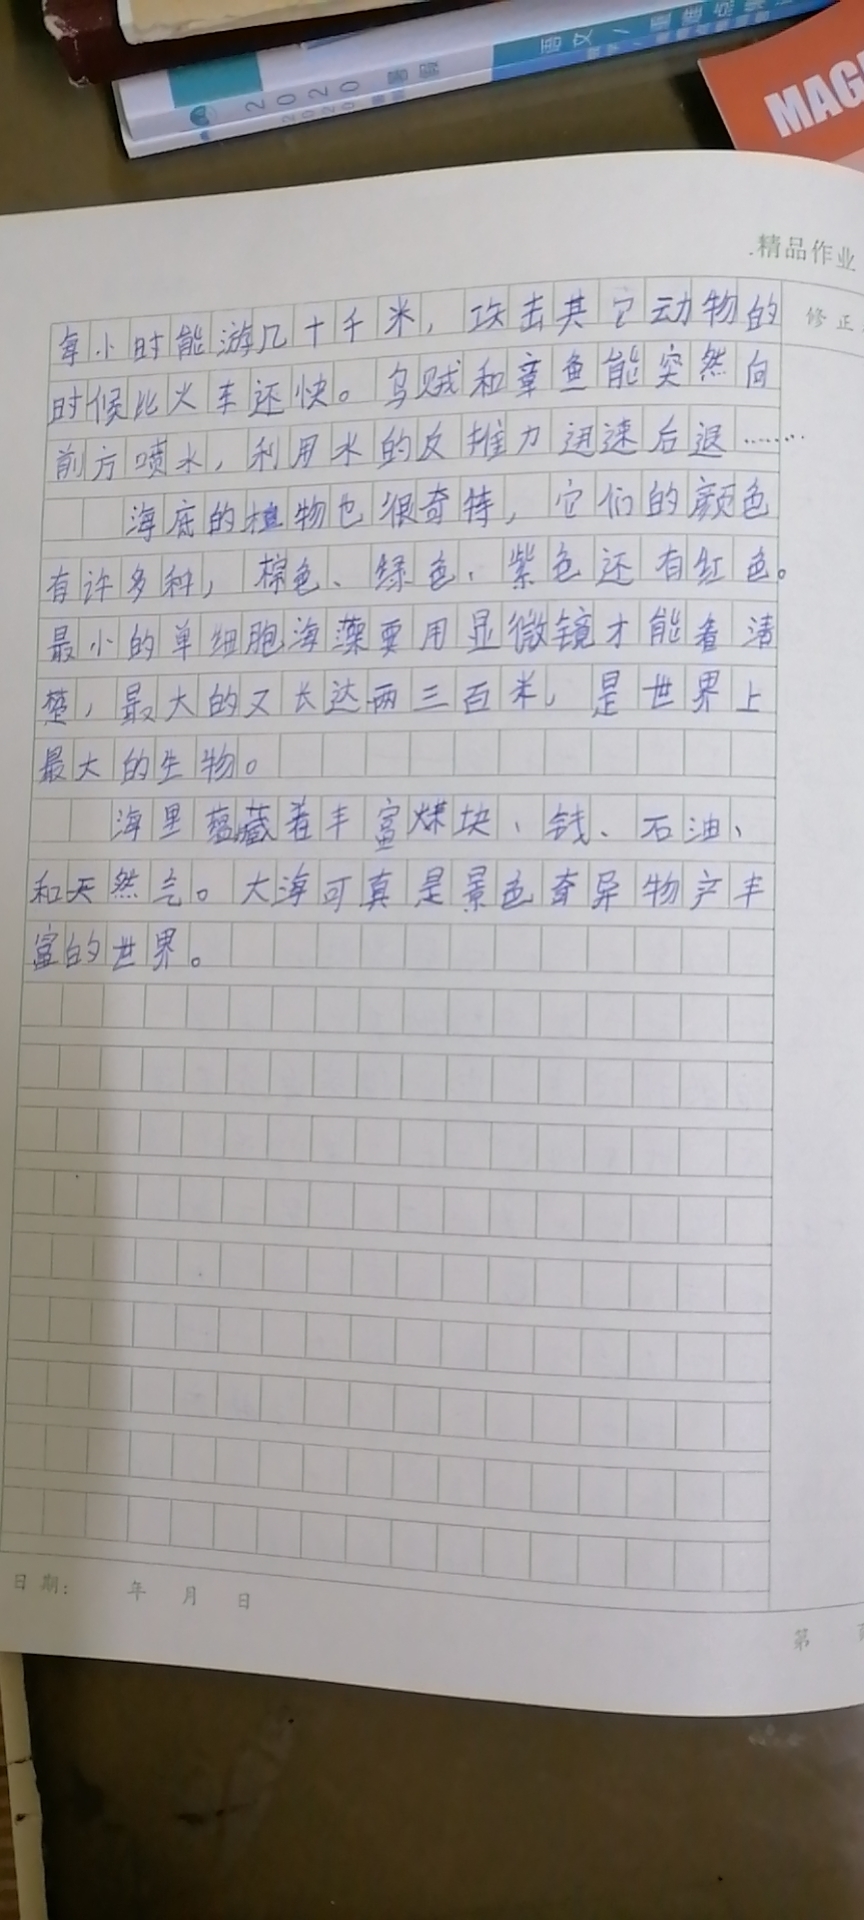 2020暑假
语文
MAG
精品作业
修正
每小时能游几十千米，攻击其它动物的
时候比火车还快。乌贼和章鱼能突然向
前方喷水，利用水的反推力迅速后退……
海底的植物也很奇特，它们的颜色
有许多种，棕色、绿色、紫色还有红色。
最小的单细胞海藻要用显微镜才能看清
楚，最大的又长达两三百米，是世界上
最大的生物。
海里蕴藏着丰富煤块、钱、石油、
和天然气。大海可真是景色奇异物产丰
富的世界。
日期： 年 月 日
第